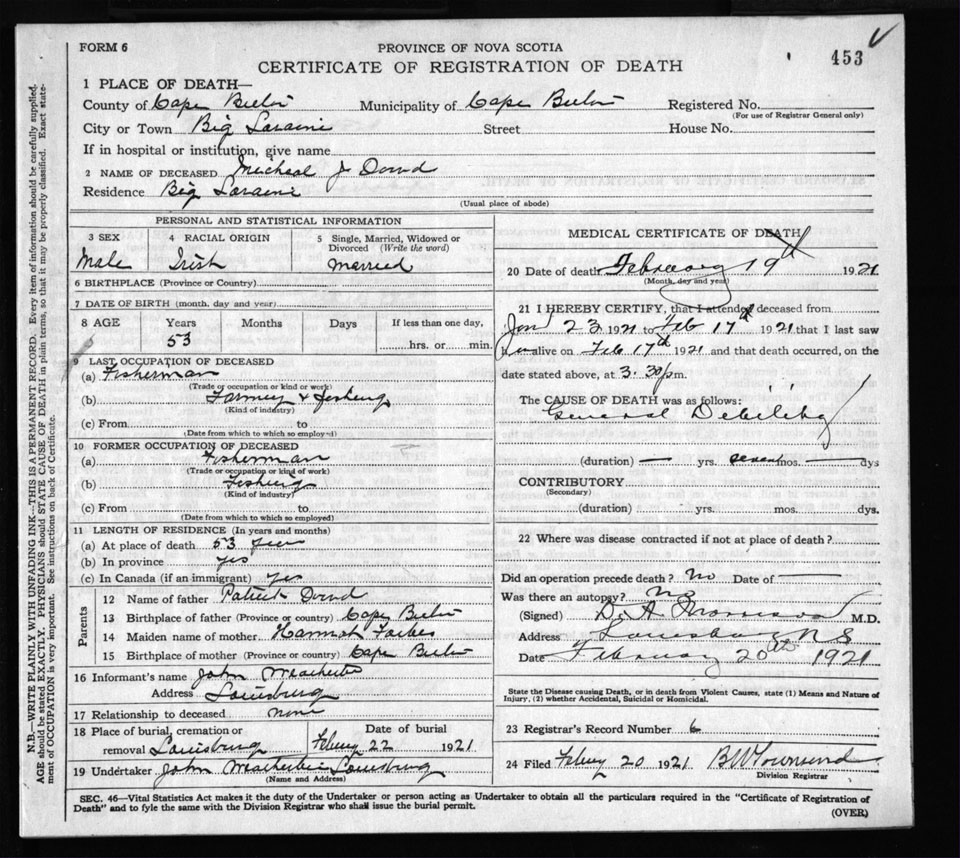 FORM 6
PROVINCE OF NOVA SCOTIA
453
CERTIFICATE OF REGISTRATION OF DEATH
1 PLACE OF DEATH—
County of Cape Breton Municipality of Cape Breton Registered No.
(For use of Registrar General only)
City or Town Big Loraine Street House No.
If in hospital or institution, give name
2 NAME OF DECEASED Micheal J Dowd
Residence Big Loraine
(Usual place of abode)
PERSONAL AND STATISTICAL INFORMATION
3 SEX 4 RACIAL ORIGIN 5 Single, Married, Widowed or Divorced (Write the word)
Male Irish Married
6 BIRTHPLACE (Province or Country)
7 DATE OF BIRTH (month, day and year)
8 AGE Years Months Days If less than one day,
53 hrs. or min.
9 LAST OCCUPATION OF DECEASED
(a) Fisherman
(Trade or occupation or kind or work)
(b) Farming & fishing
(Kind of industry)
(c) From to
(Date from which to which so employed)
10 FORMER OCCUPATION OF DECEASED
(a) Fisherman
(Trade or occupation or kind of work)
(b) Fishing
(Kind of industry)
(c) From to
(Date from which to which so employed)
11 LENGTH OF RESIDENCE (In years and months)
(a) At place of death 53 years
(b) In province yes
(c) In Canada (if an immigrant) yes
Parents
12 Name of father Patrick Dowd
13 Birthplace of father (Province or country) Cape Breton
14 Maiden name of mother Hannah Forbes
15 Birthplace of mother (Province or country) Cape Breton
16 Informant's name John
Address Louisburg
17 Relationship to deceased none
18 Place of burial, cremation or Date of burial
removal Louisburg Febury 22 1921
19 Undertaker John Louisburg
(Name and Address)
MEDICAL CERTIFICATE OF DEATH
20 Date of death February 19th 1921
(Month, day and year)
21 I HEREBY CERTIFY, that I attended deceased from
Jan 23 1921 to Feb 17th 1921 that I last saw
h alive on Feb 17th 1921 and that death occurred, on the
date stated above, at 3.30 pm.
The CAUSE OF DEATH was as follows:
General Debility
(duration) — yrs. seven mos. — days
CONTRIBUTORY
(Secondary)
(duration) yrs. mos. dys.
22 Where was disease contracted if not at place of death?
Did an operation precede death? No Date of —
Was there an autopsy? No
(Signed) M.D.
Address Louisburg N S
Date February 20th 1921
State the Disease causing Death, or in death from Violent Causes, state (1) Means and Nature of
Injury, (2) whether Accidental, Suicidal or Homicidal.
23 Registrar's Record Number 6
24 Filed Febury 20 1921 B W Townsend
Division Registrar
SEC. 46—Vital Statistics Act makes it the duty of the Undertaker or person acting as Undertaker to obtain all the particulars required in the "Certificate of Registration of
Death" and to fyle the same with the Division Registrar who shall issue the burial permit.
(OVER)
N.B.—WRITE PLAINLY WITH UNFADING INK—THIS IS A PERMANENT RECORD. Every item of information should be carefully supplied.
AGE should be stated EXACTLY. PHYSICIANS should STATE CAUSE OF DEATH in plain terms, so that it may be properly classified. Exact state-
ment of OCCUPATION is very important. See instructions on back of Certificate.